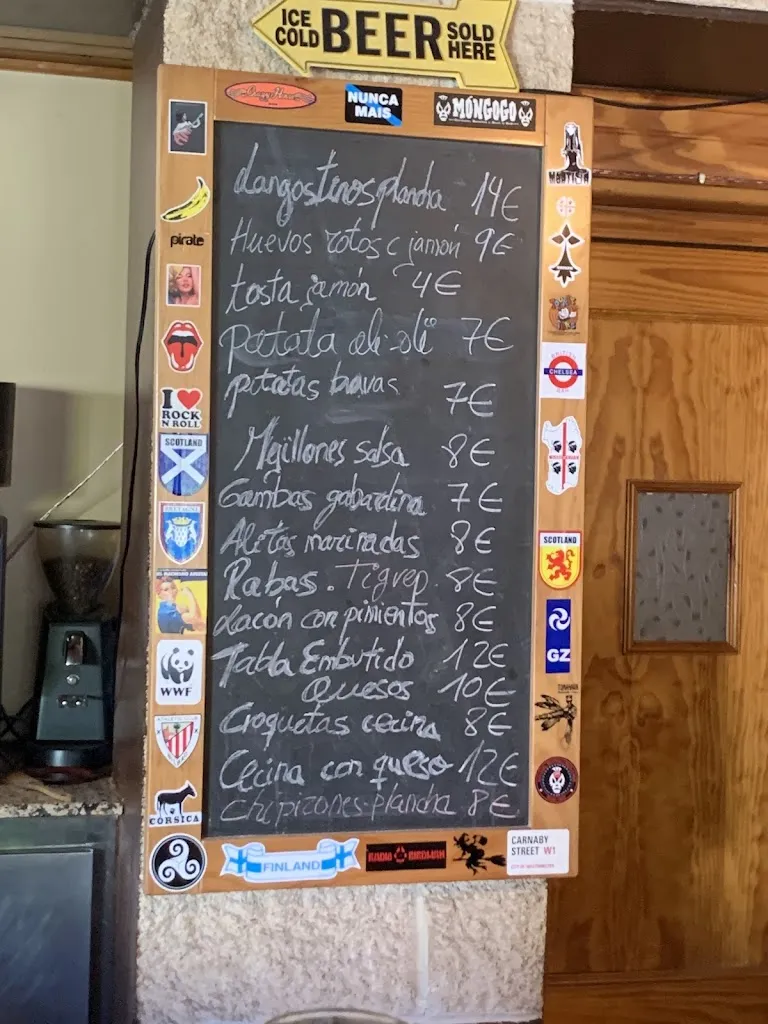 ICE COLD BEER SOLD HERE
NUNCA MAIS
MÓNGOGO
pirate
I ROCK N ROLL
SCOTLAND
BRETAGNE
WWF
ATHLETIC CLUB
CORSICA
Langostinos plancha 14€
Huevos rotos c jamón 9€
tosta jamón 4€
patata ali-oli 7€
patatas bravas 7€
Mejillones salsa 8€
Gambas gabardina 7€
Alitas marinadas 8€
Rabas. Tigres. 8€
Lacón con pimientos 8€
Tabla Embutido 12€
Quesos 10€
Croquetas cecina 8€
Cecina con queso 12€
chipirones-plancha 8€
BRITISH
CHELSEA
SCOTLAND
GZ
FINLAND
RADIO BIRDMAN
CARNABY
STREET W1
CITY OF WESTMINSTER